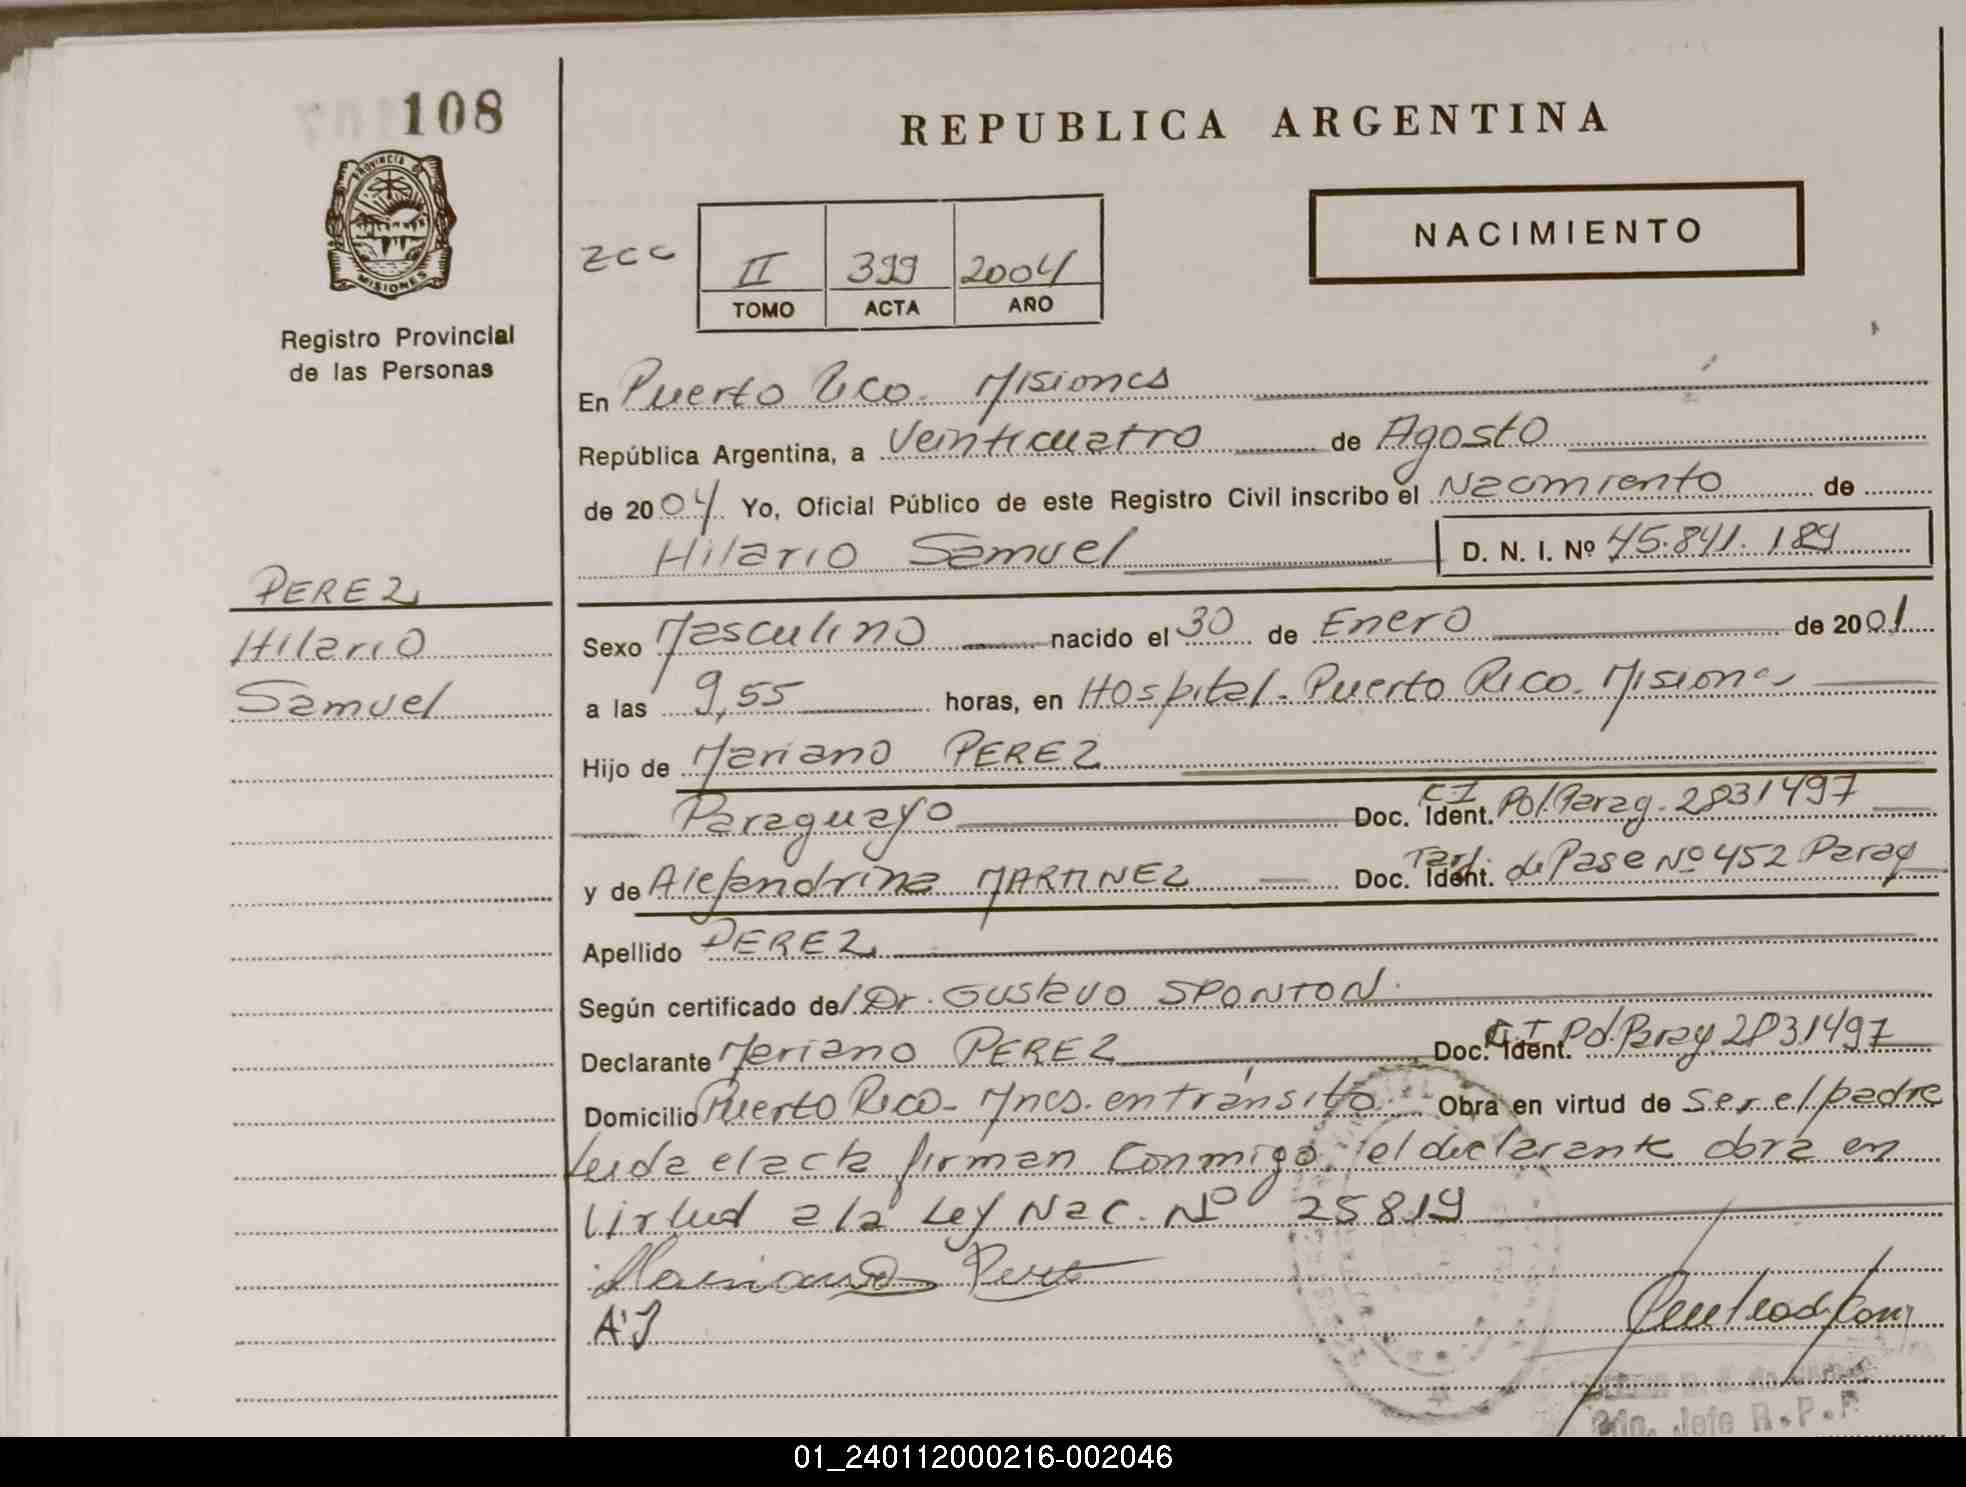 108
REPUBLICA ARGENTINA
PROVINCIA DE
MISIONES
Registro Provincial
de las Personas
NACIMIENTO
II 399 2004
TOMO ACTA AÑO
En Puerto Rico. Misiones
República Argentina, a Veinticuatro de Agosto
de 2004 Yo, Oficial Público de este Registro Civil inscribo el Nacimiento de
Hilario Samuel D. N. I. Nº 45.841.189
PEREZ
Hilario
Samuel
Sexo Masculino nacido el 30 de Enero de 2001
a las 9,55 horas, en Hospital - Puerto Rico. Misiones
Hijo de Mariano PEREZ
Paraguayo Doc. Ident. C.I Pol. Parag. 2831497
y de Alejandrina MARTINEZ Doc. Ident. Tarj. de Pase Nº 452 Parag
Apellido PEREZ
Según certificado del Dr. Gustavo SPONTON.
Declarante Mariano PEREZ Doc. Ident. C.I Pol. Parag. 2831497
Domicilio Puerto Rico - Mnes. en tránsito Obra en virtud de ser el padre
Leida el acta firman conmigo, el declarante obra en
virtud a la Ley Nac. Nº 25819
Mariano Perez
Jefe R.P.P
01_240112000216-002046